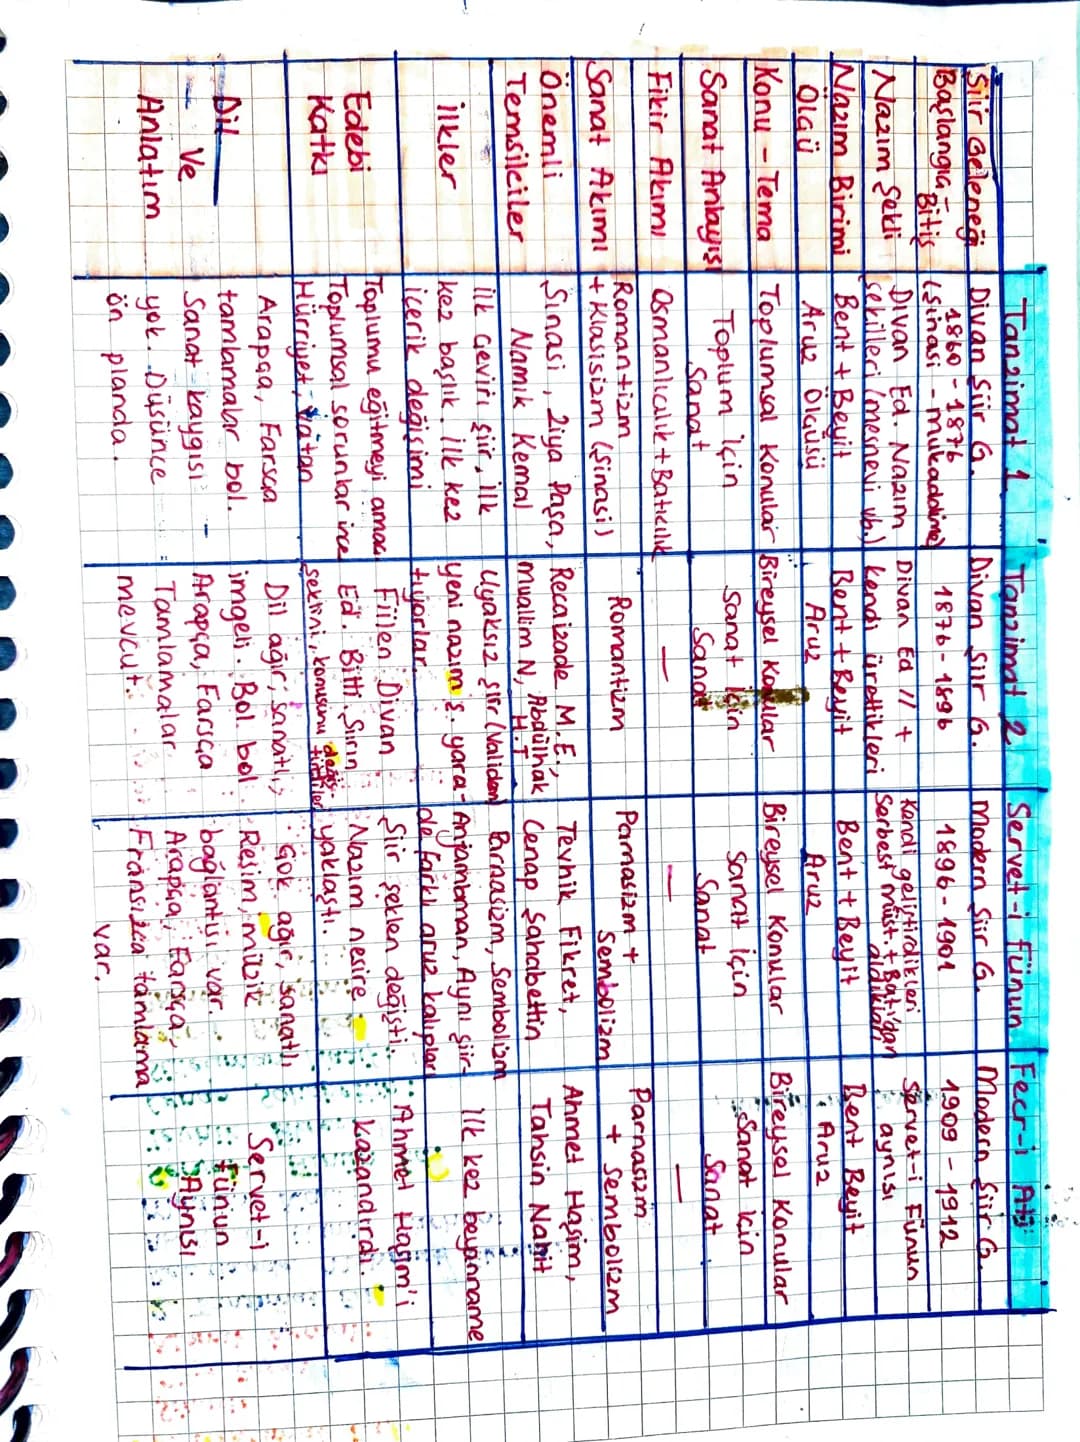 Tanzimat 1 Tanzimat 2 Servet-i Fünun Fecr-i Ati
Şiir Geleneği Divan Şiir G. Divan Şiir G. Modern Şiir G. Modern Şiir G.
Başlangıç - Bitiş 1860 - 1876 (Şinasi - mukaddime) 1876 - 1896 1896 - 1901 1909 - 1912
Nazım Şekli Divan Ed. Nazım Şekilleri (mesnevi vb.) Divan Ed // + kendi ürettikleri Kendi geliştirdikleri Serbest müst. + Batı'dan aldıkları Servet-i Fünun aynısı
Nazım Birimi Bent + Beyit Bent + Beyit Bent + Beyit Bent Beyit
Ölçü Aruz Ölçüsü Aruz Aruz Aruz
Konu - Tema Toplumsal Konular Bireysel Konular Bireysel Konular Bireysel Konular
Sanat Anlayışı Toplum için Sanat Sanat için Sanat Sanat için Sanat Sanat için Sanat
Fikir Akımı Osmanlıcılık + Batıcılık — — —
Sanat Akımı Romantizm + Klasisizm (Şinasi) Romantizm Parnasizm + Sembolizm Parnasizm + Sembolizm
Önemli Temsilciler Şinasi, Ziya Paşa, Namık Kemal Recaizade M.E., Muallim N, Abdülhak H.T Tevhik Fikret, Cenap Şahabettin Ahmet Haşim, Tahsin Nahit
İlkler İlk Çeviri Şiir, ilk kez başlık. İlk kez içerik değişimi Uyaksız şiir (Validem) yeni nazım ş. yaratıyorlar. Parnasizm, Sembolizm Anjambman, Aynı şiirde farklı aruz kalıpları İlk kez beyanname
Edebi Katkı Toplumu eğitmeyi amaç Toplumsal sorunlar ince Hürriyet, Vatan Fiilen Divan Ed. Bitti. Şiirin şeklini, konusunu değiştirdiler Şiir şeklen değişti. Nazım nesire yaklaştı. Ahmet Haşim'i kazandırdı.
Dil Ve Anlatım Arapça, Farsça tamlamalar bol. Sanat kaygısı yok. Düşünce ön planda. Dil ağır, sanatlı, imgeli. Bol bol Arapça, Farsça Tamlamalar mevcut. Çok ağır, sanatlı Resim, müzik bağlantısı var. Arapça, Farsça, Fransızca tamlama var. Servet-i Fünun Aynısı